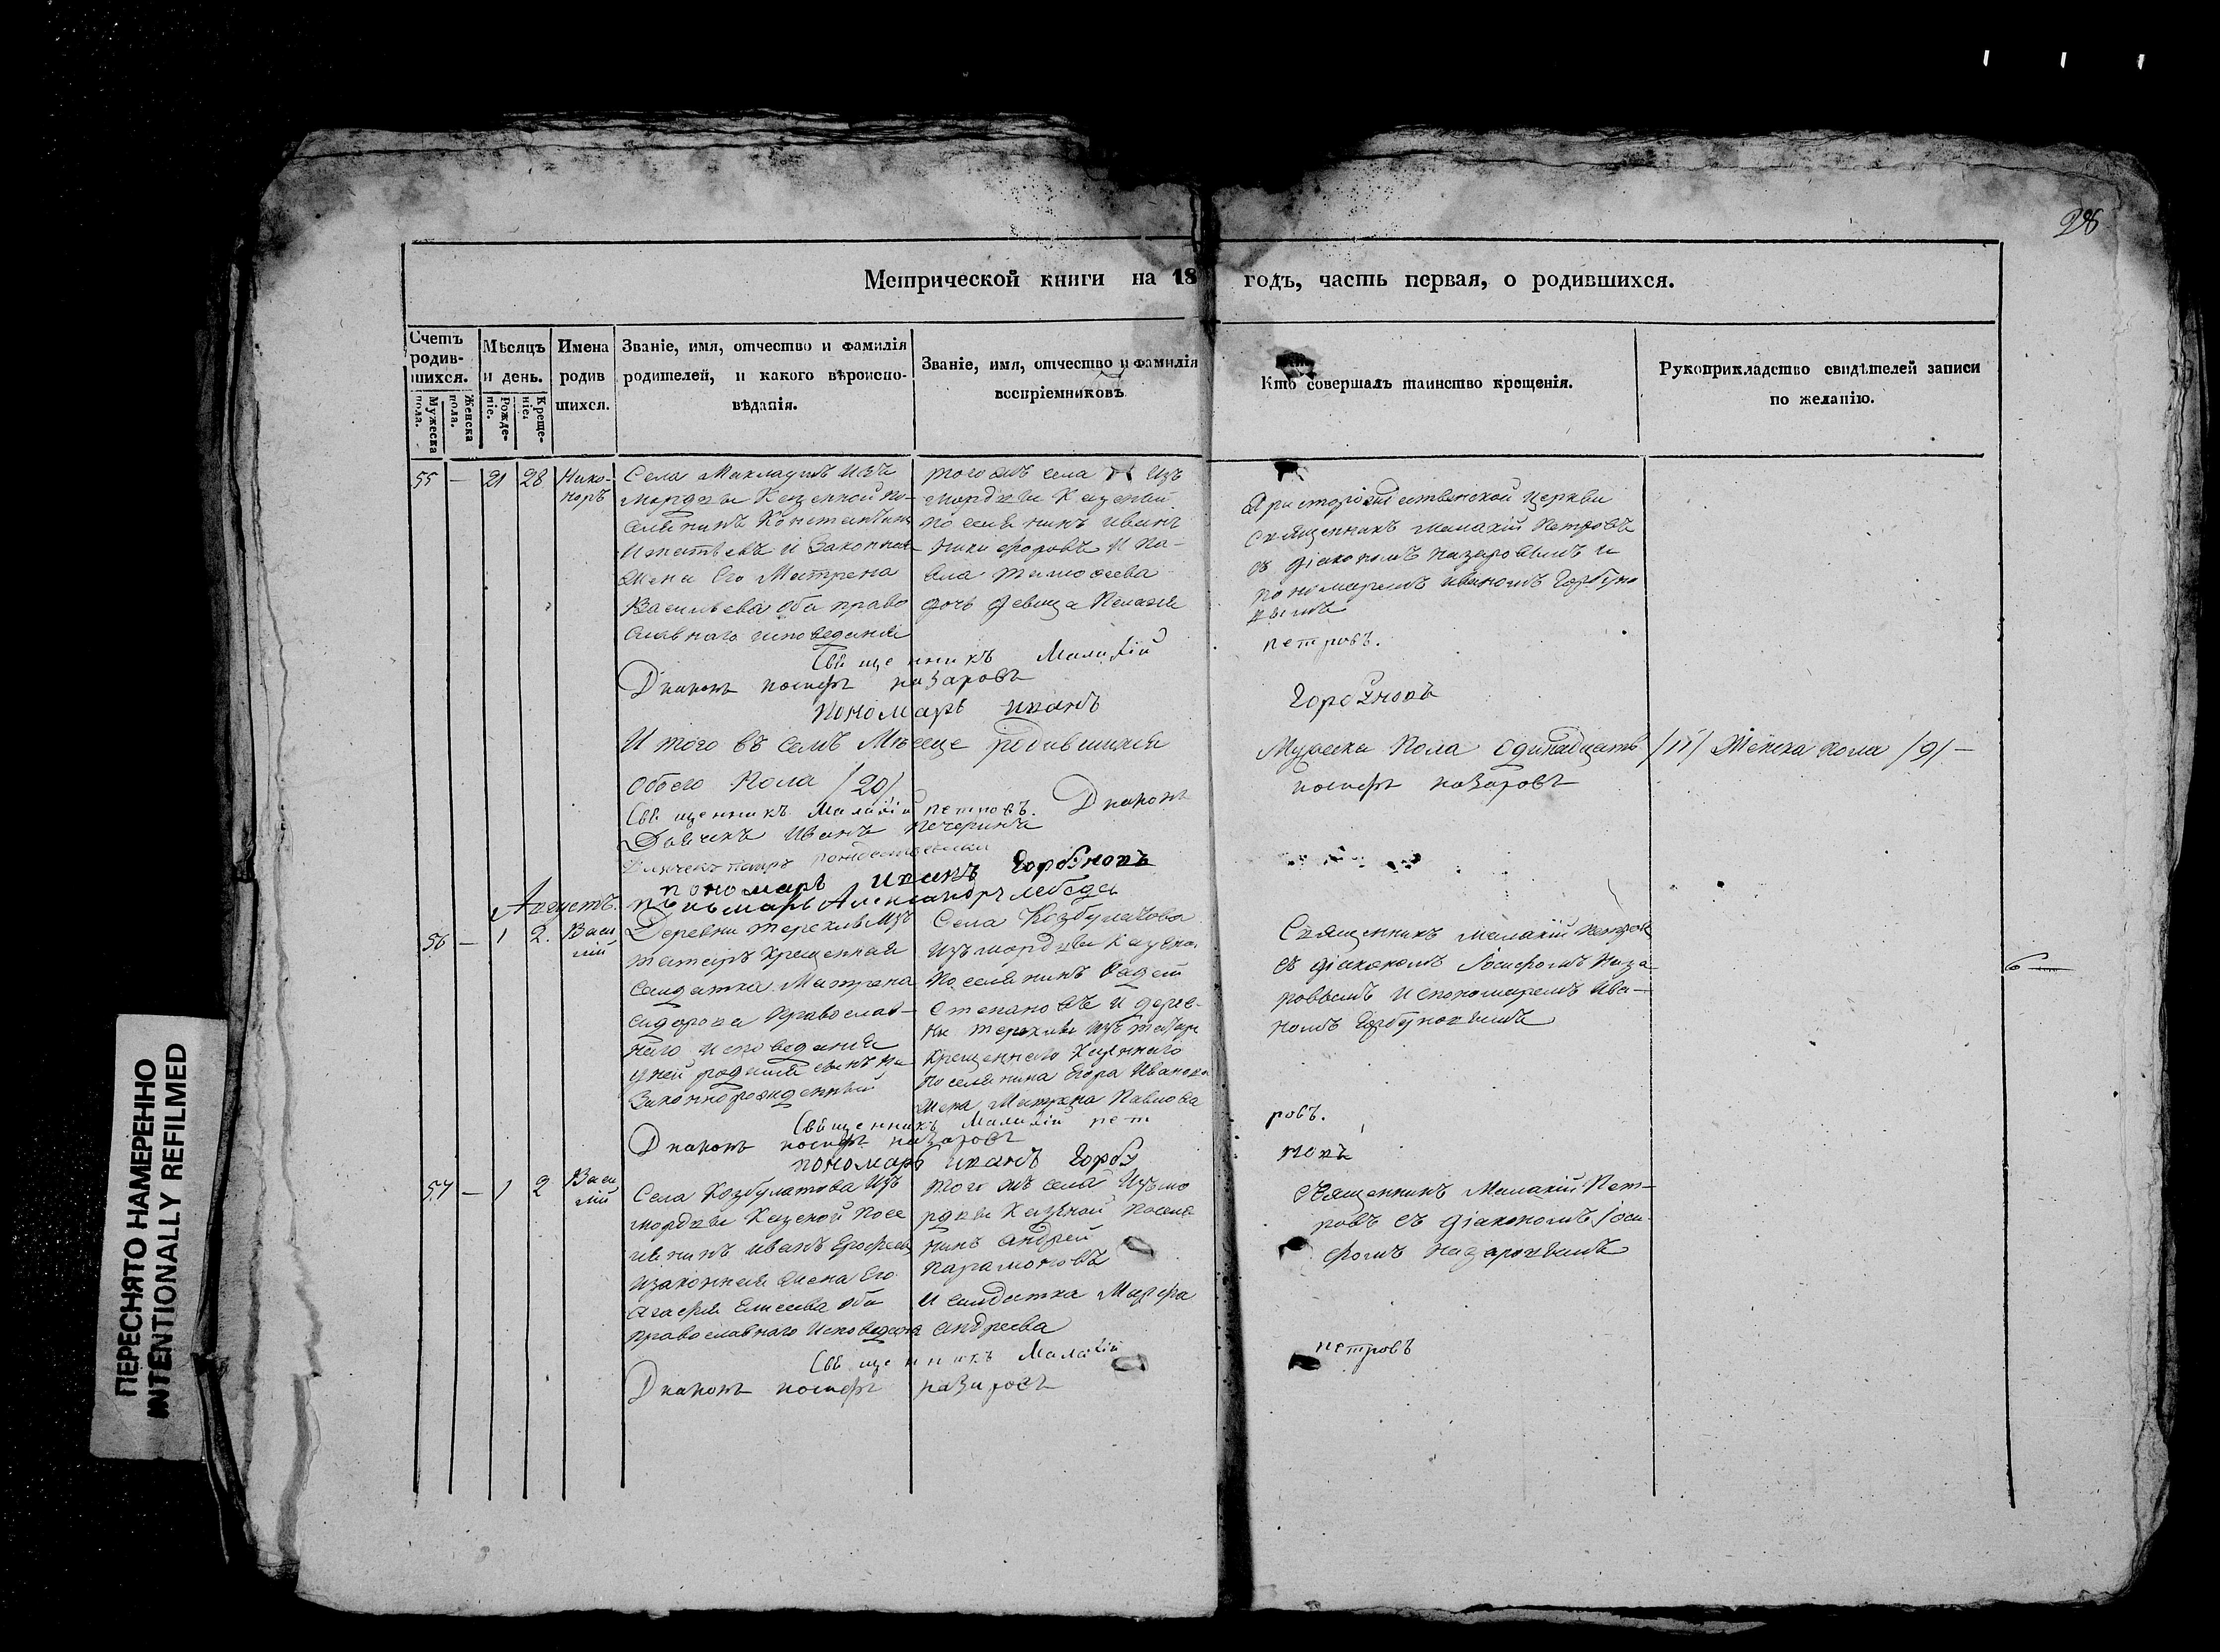 28
Метрической книги на 18 годъ, часть первая, о родившихся.
Счетъ родив-шихся.
Мужеска пола.
Женска пола.
Мѣсяцъ и день.
Рожде-ніе.
Креще-ніе.
Имена родив шихся.
Званіе, имя, отчество и фамилія
родителей, и какого вѣроиспо-
вѣданія.
Званіе, имя, отчество и фамилія
воспріемниковъ
Кто совершалъ таинство крещенія.
Рукоприкладство свидѣтелей записи
по желанію.
55 — 21 28 Нико-
норъ
Села Маклаушъ изъ
мордвы Казенной по-
селянинъ Константинъ
Игнатьевъ и Законная
жена Его Матрена
Васильева оба право
славнаго исповеданія
тогожъ села изъ
мордвы Казеный
поселянинъ иванъ
никифоровъ и па-
вла тимофеева
дочь девица Пелагея
Христорождественской церкви
священникъ малахій Петровъ
съ діакономъ назаровымъ и
пономаремъ иваномъ Горбуно
вымъ
Священникъ Малахій петровъ.
Дияконъ иосифъ назаровъ
пономарь иванъ Горбуновъ
И того въ семъ Месеце родившихся Мужеска Пола одинадцать /11/ Женска пола /9/ —
обоего Пола /20/
Священникъ Малахій петровъ. Дияконъ иосифъ назаровъ
Дьячекъ Иванъ Печеринъ
Дьячекъ петръ
пономарь иванъ Горбуновъ
пономарь Александръ лебеде
Августъ.
56 — 1 2. Васи
лій
Деревни терехлы изъ
татаръ Крещенная
Салдатка Матрена
сидорова Православ-
наго исповеданія
у ней родился сынъ не-
Законнорожденный
Села Козбулатова
изъ мордвы Казено.
Поселянинъ Фадей
Степановъ и дерев-
ни терехлы изъ татаръ
Крещеннаго Казеннаго
поселянина Егора Иванова
жена Матрена Павлова
Священникъ малахій петровъ
съ діакономъ Іосифомъ Наза
ровымъ и спономаремъ Ива-
номъ Горбуновымъ
Священникъ Малахій петровъ.
Дияконъ иосифъ назаровъ
пономарь иванъ Горбуновъ
57 — 1 2 Васи
лій
Села Козбулатова изъ
мордвы Казеной посе
лянинъ иванъ Ерофеевъ
изаконная жена Его
агафья Елисеева оба
православнаго исповедания
того жъ села изъ мо
рдвы Казеной посея
нинъ андрей
парамоновъ
и салдатка Марфа
андреева
священникъ Малахій Пет-
ровъ съ діакономъ Іоси-
фомъ назаровымъ
Священникъ Малахій петровъ
Дияконъ иосифъ назаровъ
ПЕРЕСНЯТО НАМЕРЕННО
INTENTIONALLY REFILMED